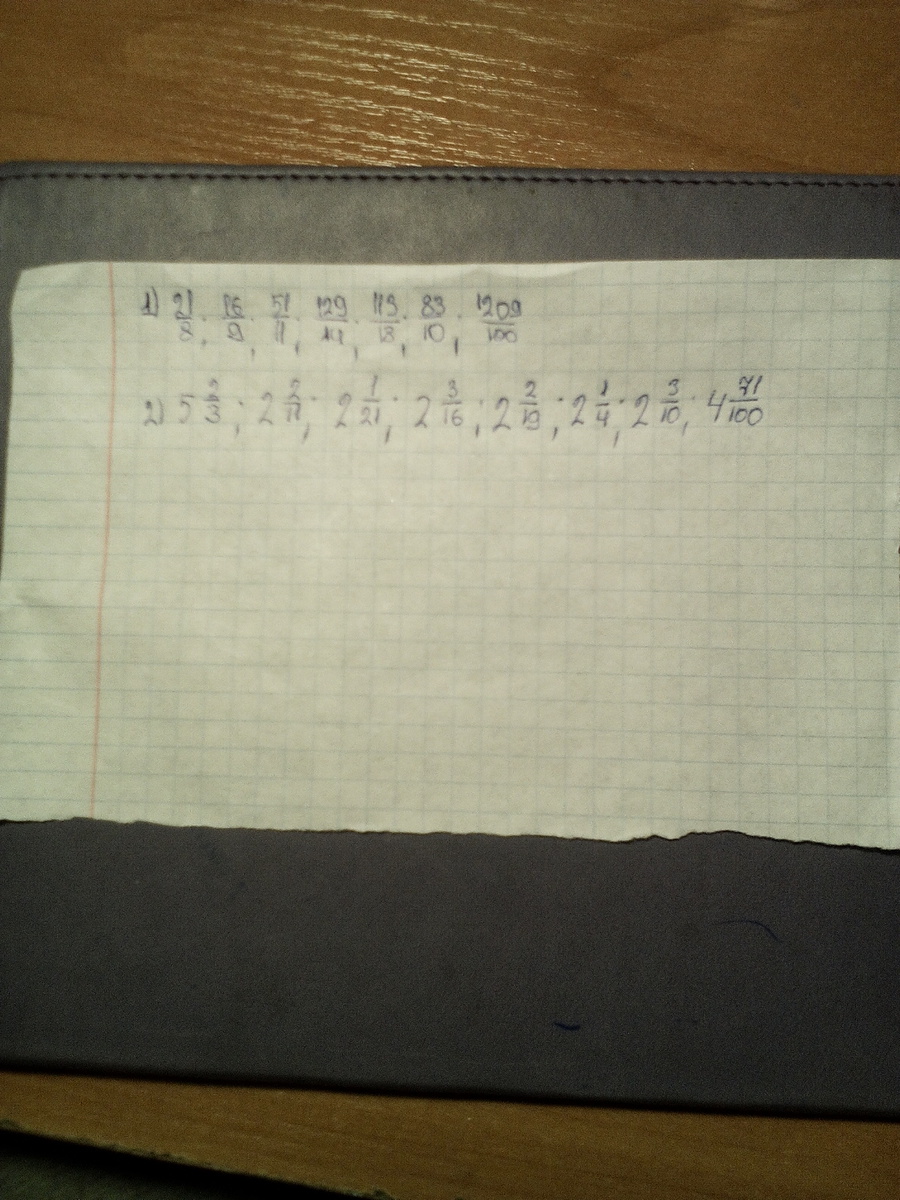 1) 21/8; 16/9; 51/11; 129/14; 113/18; 83/10; 1209/100
2) 5 2/3; 2 2/11; 2 1/21; 2 3/16; 2 2/19; 2 1/4; 2 3/10; 4 71/100